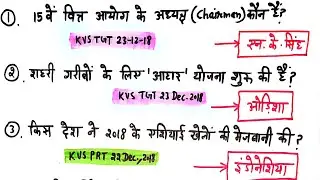 ①. 15वें वित्त आयोग के अध्यक्ष (Chairmen) कौन हैं?
KVS TGT 23-12-18
एन. के. सिंह
②. शहरी गरीबों के लिए 'आहार' योजना शुरू की है?
KVS TGT 23 Dec. 2018
ओडिशा
③. किस देश ने 2018 के एशियाई खेलों की मेजबानी की?
KVS PRT 22 Dec, 2018
इंडोनेशिया